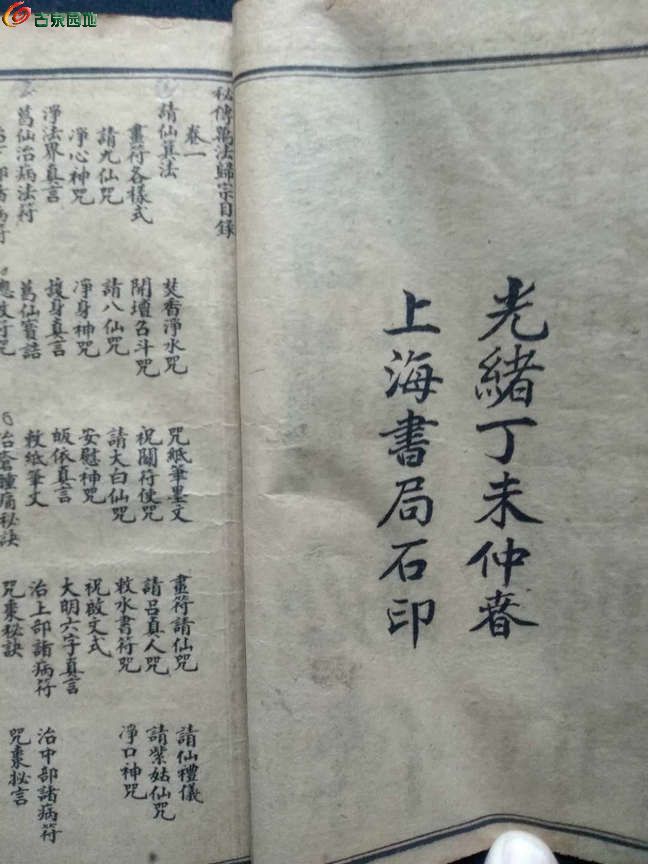 古泉园地
光緒丁未仲春
上海書局石印
秘傳萬法歸宗目錄
卷一
請仙箕法 焚香淨水咒 咒紙筆墨文 畫符請仙咒 請仙禮儀
畫符各樣式 開壇召斗咒 祝關符使咒 請呂真人咒 請紫姑仙咒
請九仙咒 請八仙咒 請大白仙咒 敕水書符咒 凈口神咒
凈心神咒 凈身神咒 安慰神咒 祝啟文式
淨法界真言 護身真言 皈依真言 大明六字真言
葛仙治病法符 葛仙寶誥 敕紙筆文 治上部諸病符 治中部諸病符
部諸病符 符咒 治瘡腫痛秘訣 咒棗秘訣 咒棗秘言